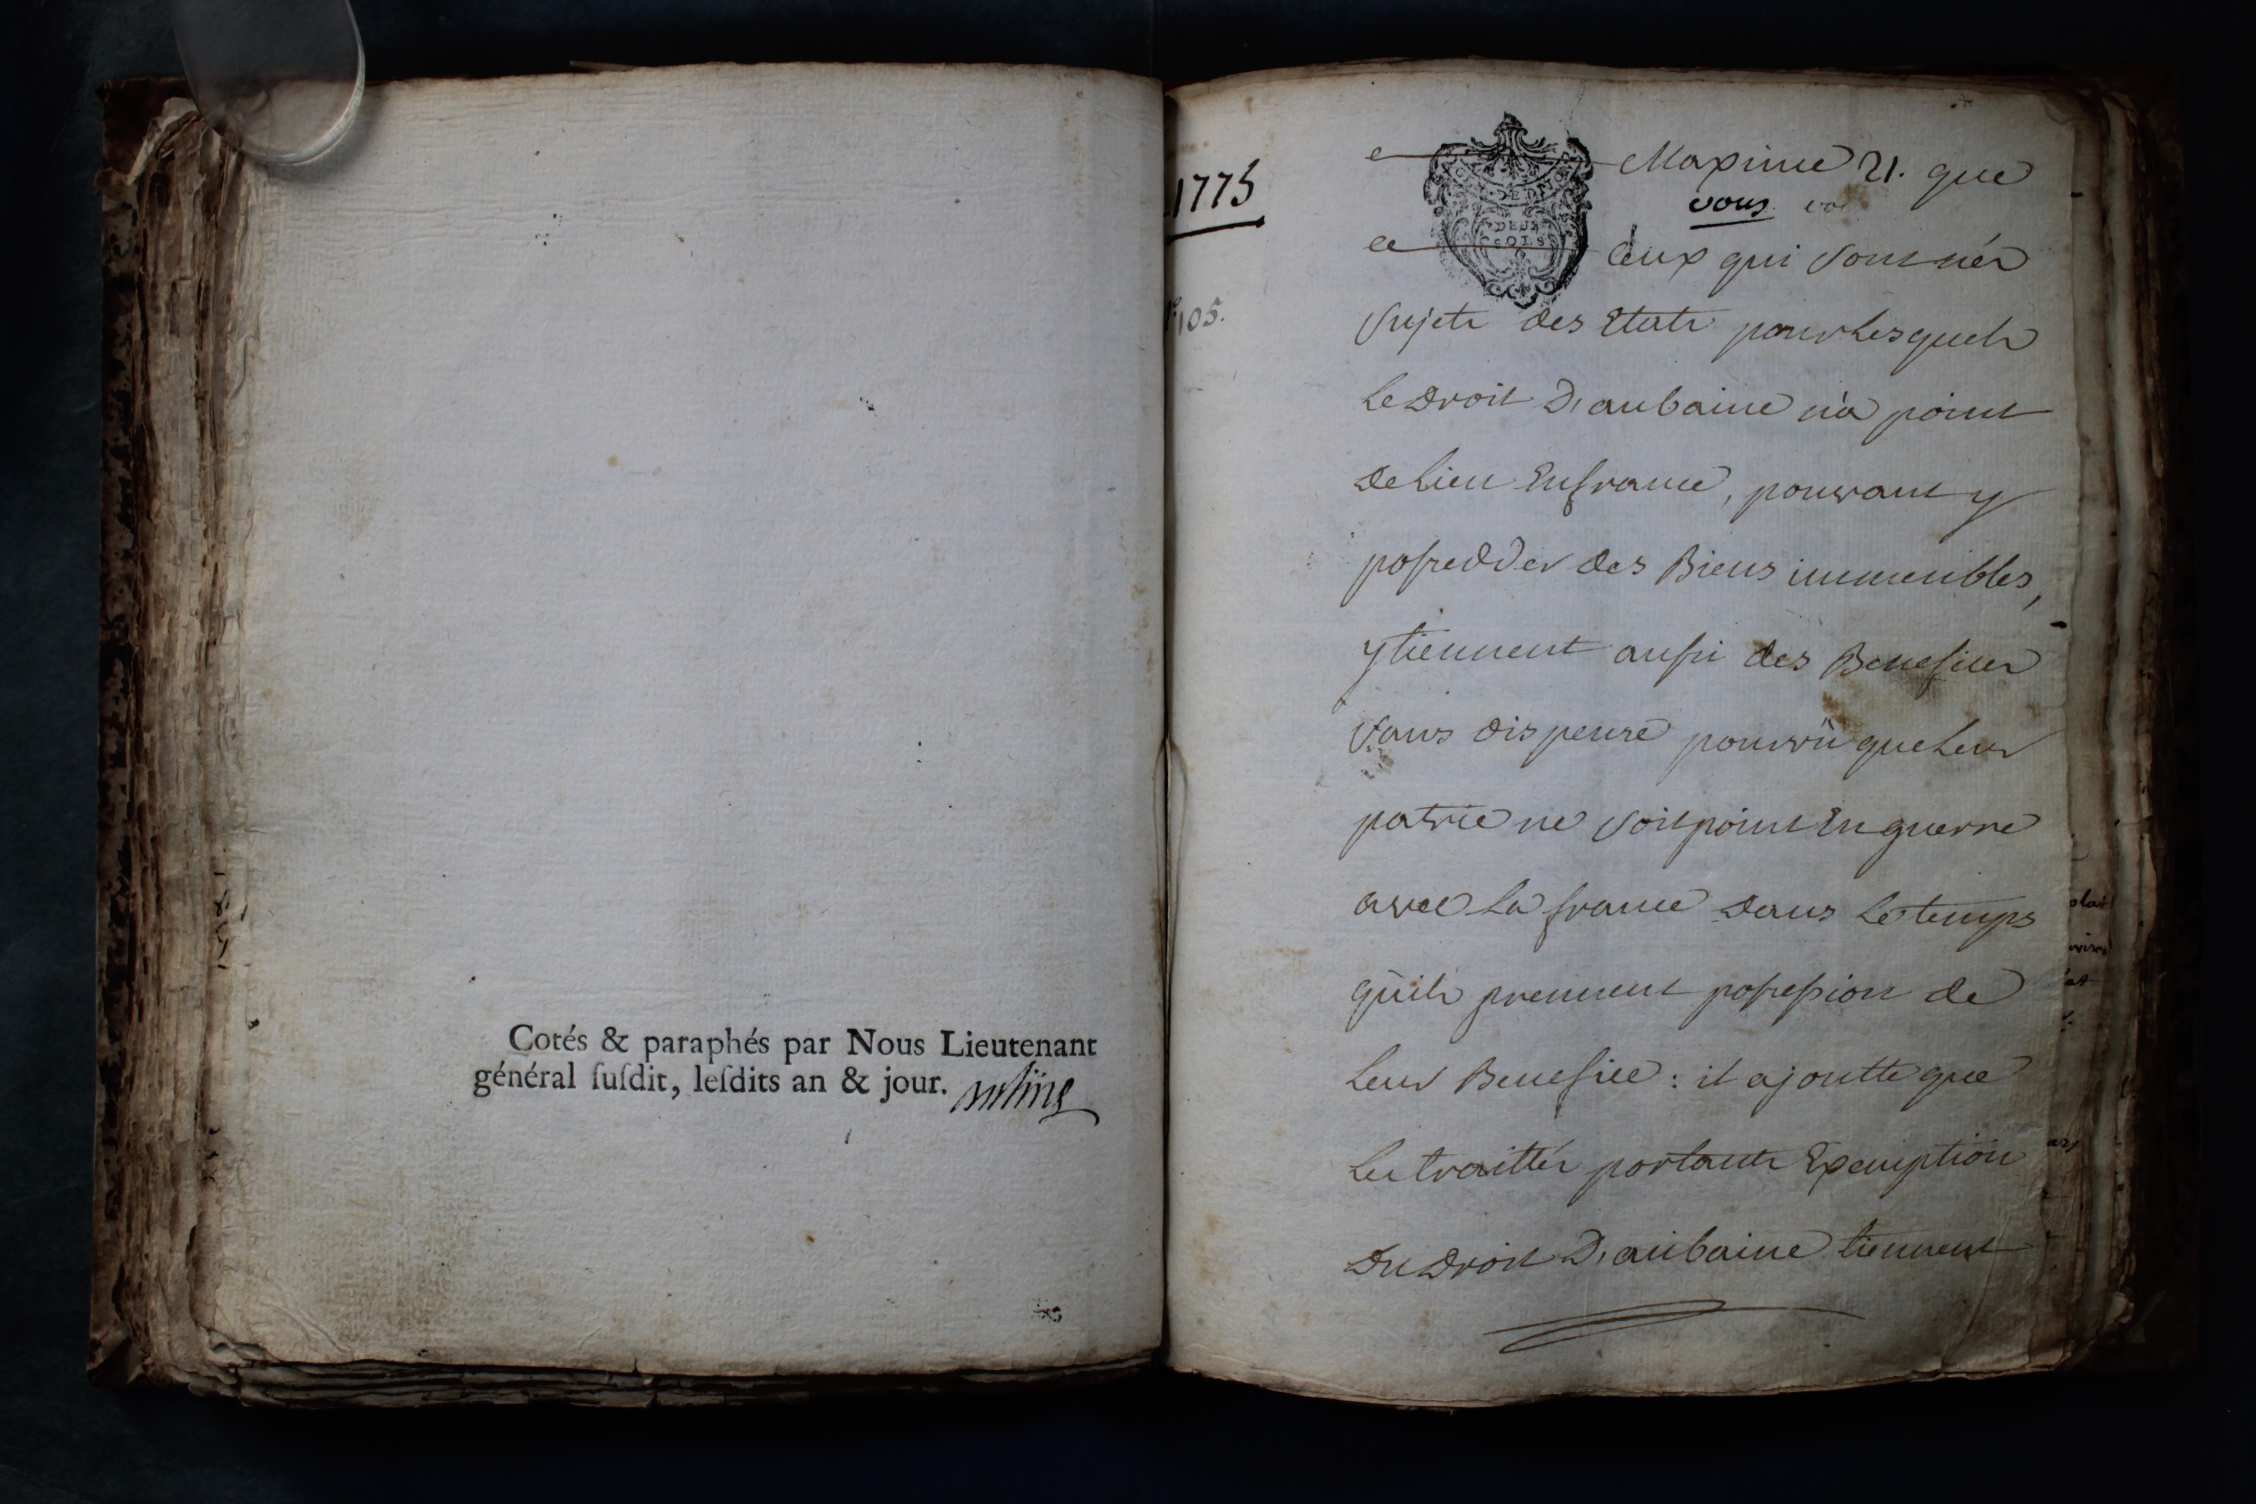 Cotés & paraphés par Nous Lieutenant
général ſuſdit, leſdits an & jour.
1775
105.
DEUX
SOLS
e Maxime 21. que
vous
ce Ceux qui sont nés
sujets des Etats pour lesquels
le Droit D'aubaine n'a point
de lieu En france, pouvant y
posseder des Biens immeubles,
y tiennent aussi des Benefices
sans dispense pourvû que leur
patrie ne soit point En guerre
avec la france dans le temps
qu'ils prennent possession de
leur Benefice : il ajoutte que
les traittés portants Exemption
du Droit D'aubaine tiennent